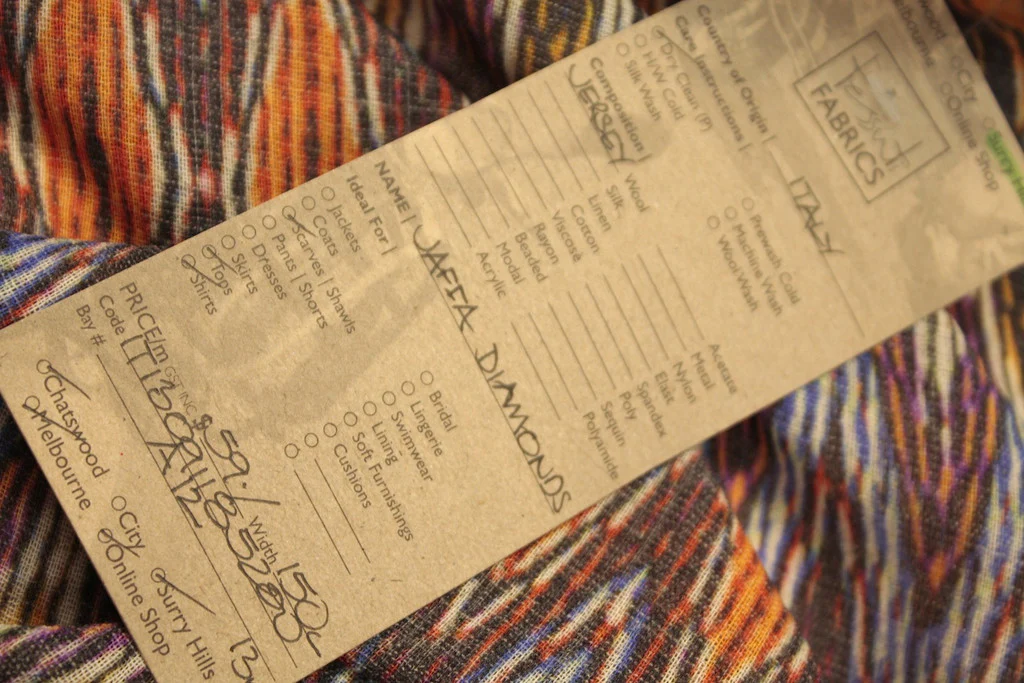 Tessuti
FABRICS
City
Online Shop
Country of Origin | ITALY
Care Instructions |
Dry Clean (P)
H/W Cold
Silk Wash
Prewash Cold
Machine Wash
Wool Wash
Composition |
JERSEY
Wool
Silk
Linen
Cotton
Viscose
Rayon
Beaded
Modal
Acrylic
Acetate
Metal
Nylon
Elastic
Spandex
Poly
Sequin
Polyamide
NAME | JAFFA DIAMONDS
Ideal For |
Jackets
Coats
Scarves | Shawls
Pants | Shorts
Dresses
Skirts
Tops
Shirts
Bridal
Lingerie
Swimwear
Lining
Soft Furnishings
Cushions
PRICE/m GST INC $59./ Width 150c
Code
Bay # A12
Chatswood
Melbourne
City
Online Shop
Surry Hills